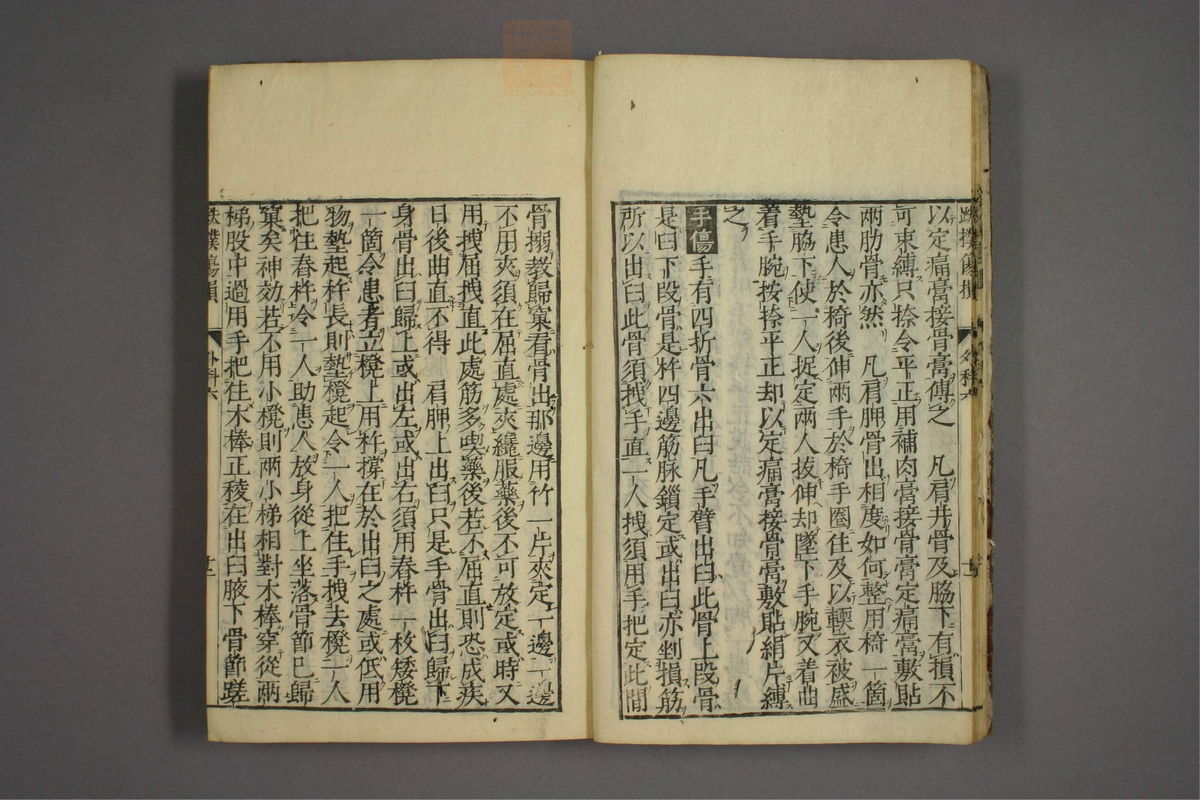 以定痛膏接骨膏傅之　凡肩井骨及脇下有損不
可束縛只捺令平正用補肉膏接骨膏定痛膏敷貼
兩肋骨亦然　凡肩胛骨出相度如何整用椅一箇
令患人於椅後伸兩手於椅手圈住及以輭衣被盛
墊脇下使一人捉定兩人拔伸却墜下手腕又着曲
着手腕按捺平正却以定痛膏接骨膏敷貼絹片縛
之
手傷 手有四折骨六出臼凡手臂出臼此骨上段骨
是臼下段骨是杵四邊筋脉鎖定或出臼亦剉損筋
所以出臼此骨須拽手直一人拽須用手把定此間
骨搦教歸窠看骨出那邊用竹一片夾定一邊一邊
不用夾須在屈直處夾纔服藥後不可放定或時又
用拽屈拽直此處筋多喫藥後若不屈直則恐成疾
日後曲直不得　肩胛上出臼只是手骨出臼歸下
身骨出臼歸上或出左或出右須用舂杵一枚矮櫈
一箇令患者立櫈上用杵撐在於出臼之處或低用
物墊起杵長則墊櫈起令一人把住手拽去櫈一人
把住舂杵令一人助患人放身從上坐落骨節已歸
窠矣神効若不用小櫈則兩小梯相對木棒穿從兩
梯股中過用手把住木棒正稜在出臼腋下骨節蹉
跌撲傷損
外科六
十二